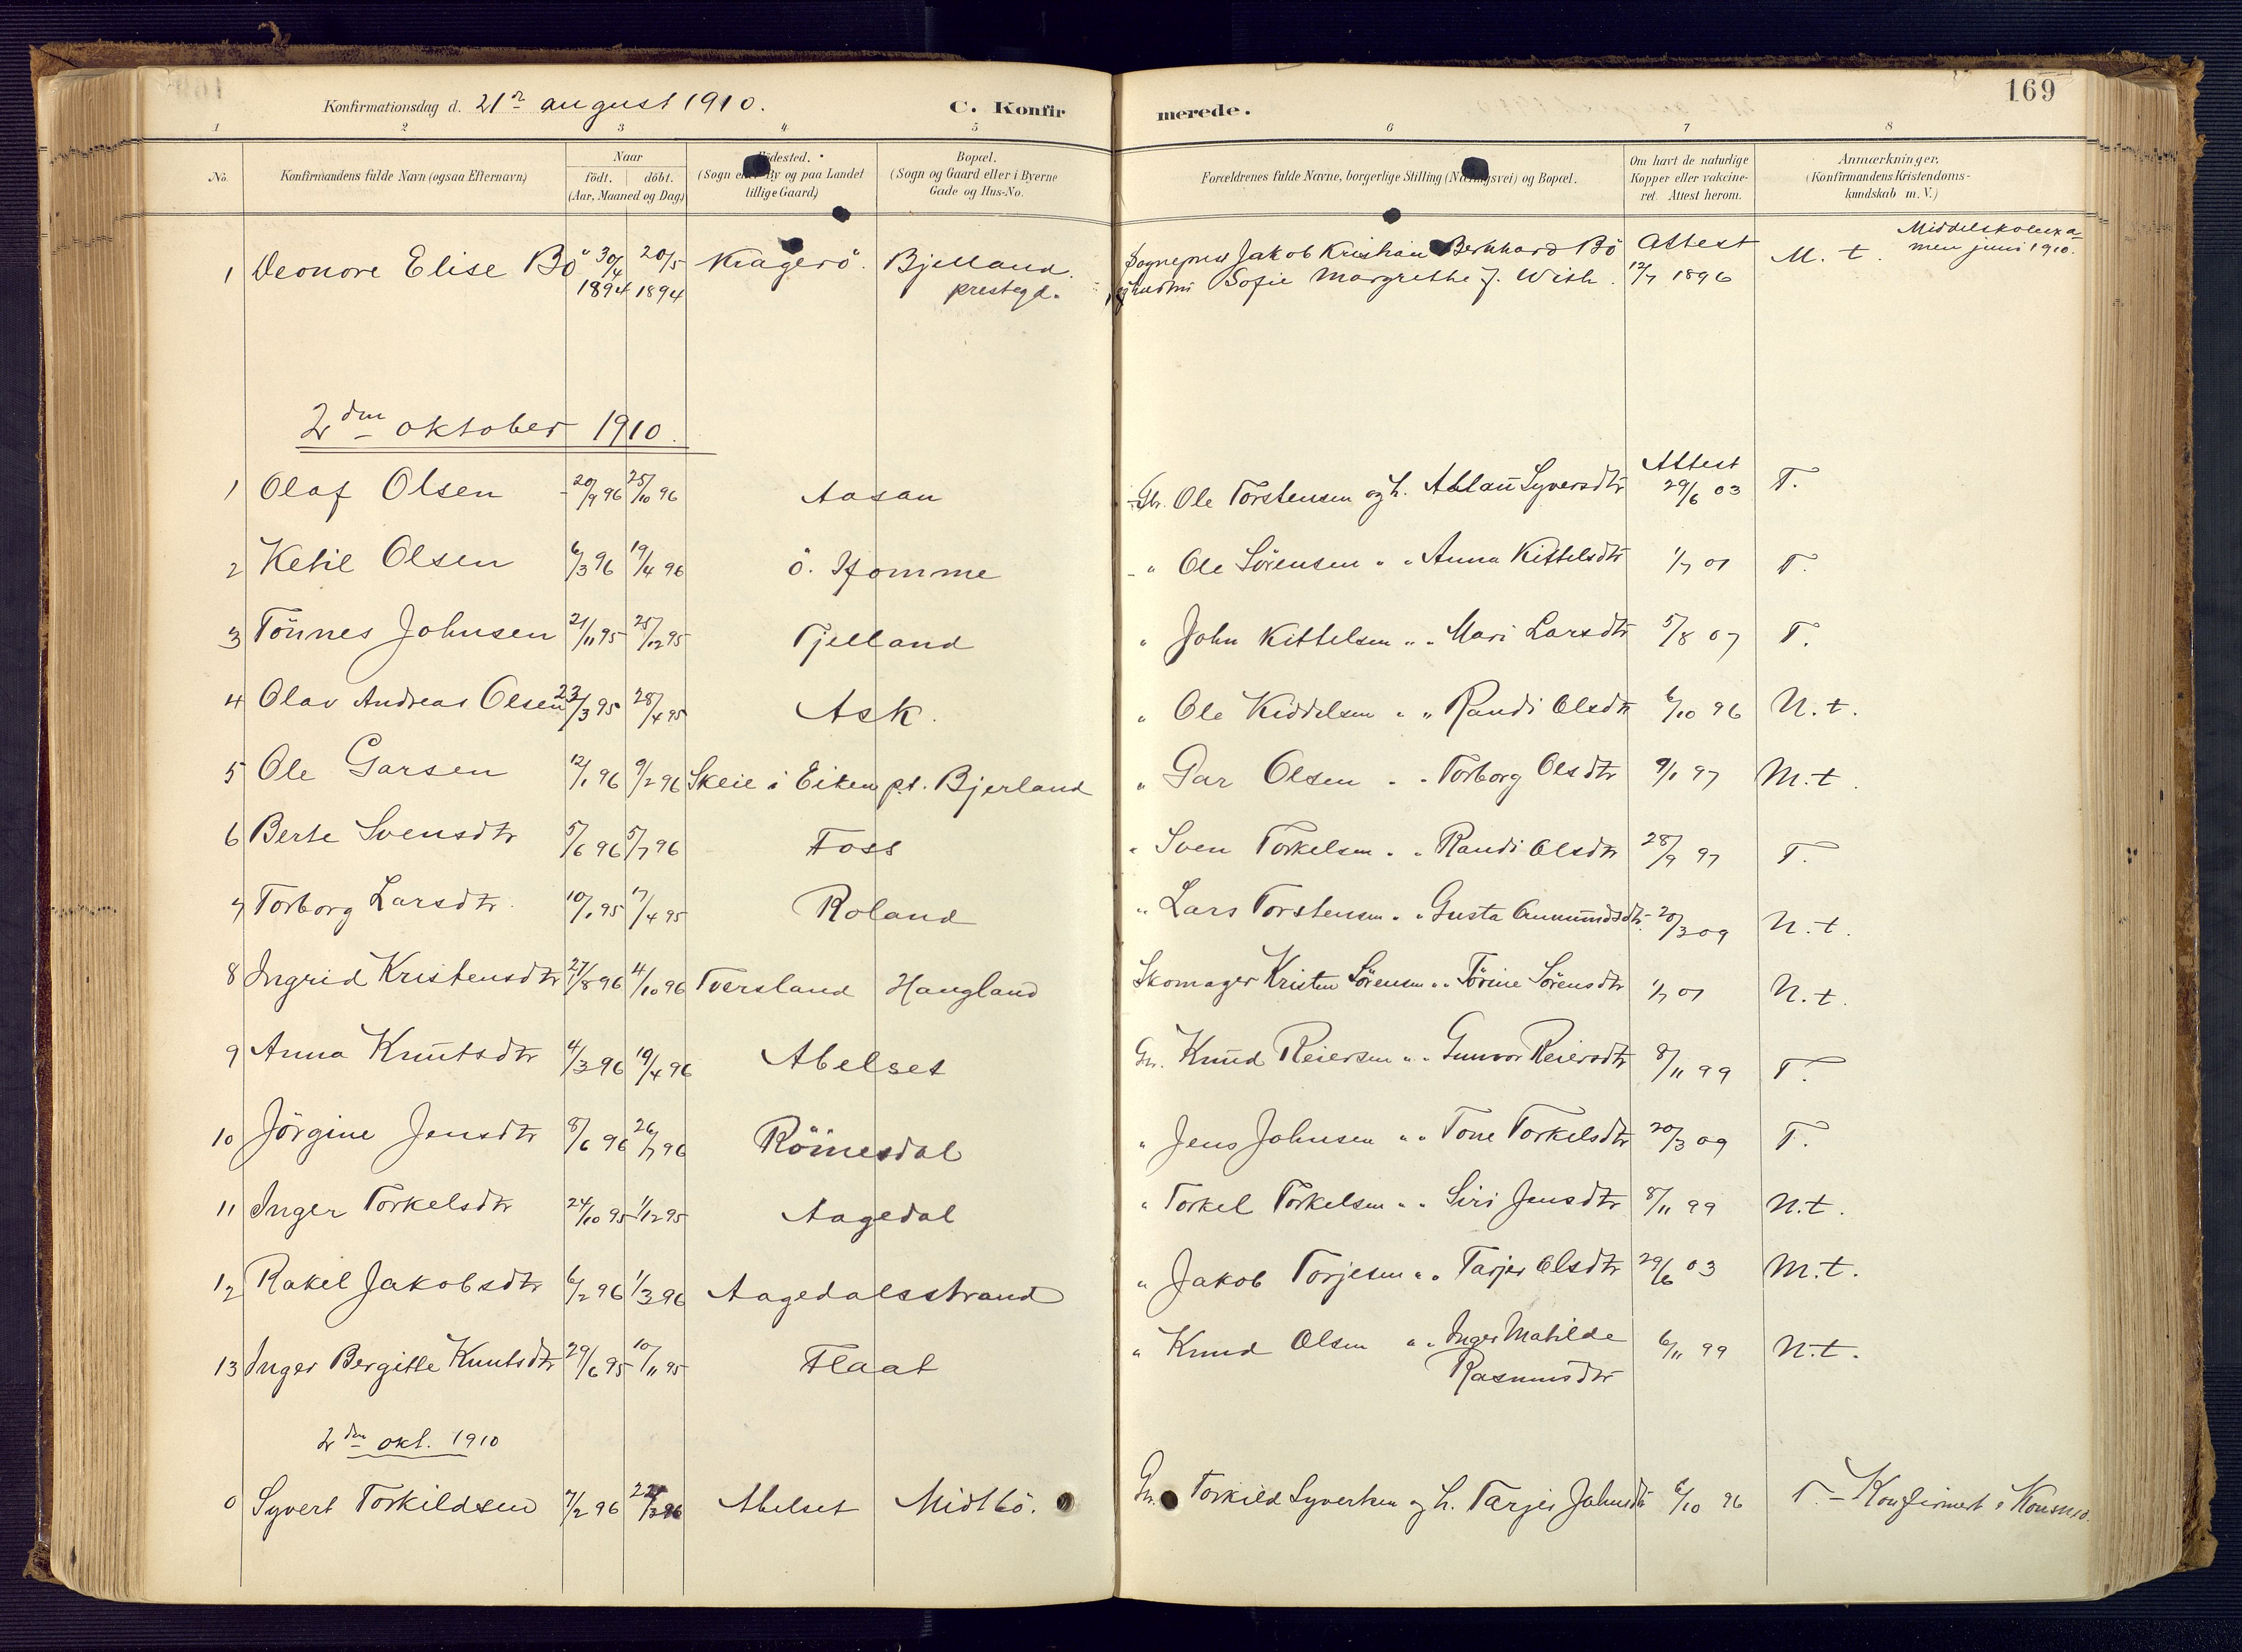 169
Konfirmationsdag d. 21de august 1910. C. Konfirmerede.
1 2 3 4 5 6 7 8
No. Konfirmandens fulde Navn (ogsaa Efternavn) Naar födt. döbt. (Aar, Maaned og Dag) Födested. (Sogn eller By og paa Landet tillige Gaard) Bopæl. (Sogn og Gaard eller i Byerne Gade og Hus-No. Forældrenes fulde Navne, borgerlige Stilling (Næringsvei) og Bopæl. Om havt de naturlige Kopper eller vakcineret. Attest herom. Anmærkninger, (Konfirmandens Kristendomskundskab m. V.)
1 Deonore Elise Bö 30/4 1894 20/5 1894 Kragerö. Bjelland prestegd. Sogneprest Jakob Kristian Bernhard Bö og hustru Sofie Margrethe J. Wish. Attest 12/7 1896 M. t. Middelskolexamen juni 1910.
2den oktober 1910.
1 Olaf Olsen 20/9 96 25/10 96 Aasan Gbr. Ole Torstensen og h. Ablau Syversdtr Attest 29/6 03 T.
2 Ketil Olsen 6/3 96 19/4 96 ö. Homme " Ole Sörensen " " Anna Kittelsdtr 1/7 01 T.
3 Tönnes Johnsen 21/11 95 25/12 95 Tjelland " John Kittelsen " " Mari Larsdtr 5/8 07 T.
4 Olav Andreas Olsen 23/3 95 28/4 95 Ask. " Ole Kiddelsen " " Randi Olsdtr 6/10 96 N. t.
5 Ole Garsen 12/1 96 9/2 96 Skeie i Eiken p.t. Bjerland " Gar Olsen " " Torborg Olsdtr 9/1 97 M. t.
6 Berte Svensdtr 5/6 96 5/7 96 Foss " Sven Torkelsen " " Randi Olsdtr 28/9 97 T.
7 Torborg Larsdtr. 10/1 95 17/4 95 Roland " Lars Torstensen " " Gusta Aanundsdtr 20/3 09 N. t.
8 Ingrid Kristensdtr 27/8 96 4/10 96 Tversland Haugland Skomager Kristen Sörensen " " Törine Sörensdtr 1/7 01 N. t.
9 Anna Knutsdtr 4/3 96 19/4 96 Abelset Gbr. Knud Reiersen " " Gunvor Reiersdtr 8/11 99 T.
10 Jörgine Jensdtr 8/6 96 26/7 96 Röinesdal " Jens Johnsen " " Tone Torkelsdtr 20/3 09 T.
11 Inger Torkelsdtr 24/10 95 1/12 95 Aagedal " Torkel Torkelsen " " Siri Jensdtr 8/11 99 N. t.
12 Rakel Jakobsdtr 6/2 96 1/3 96 Aagedalsstrand " Jakob Torjesen " " Tarjer Olsdtr 29/6 03 M. t.
13 Inger Bergitte Knutsdtr 29/6 95 10/11 95 Flaat " Knud Olsen " " Inger Matilde Rasmusdtr 6/11 99 N. t.
2den okt. 1910
0 Syvert Torkildsen 7/2 96 22/3 96 Abelset Midtbö. Gbr. Torkild Syvertsen og h. Tarjer Johnsdtr 6/10 96 T. - Konfirmert i Konsmo.